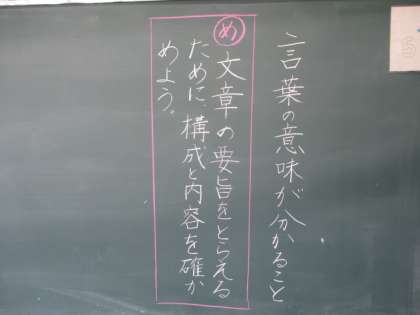 言葉の意味が分かること
め 文章の要旨をとらえる
ために、構成と内容を確か
めよう。